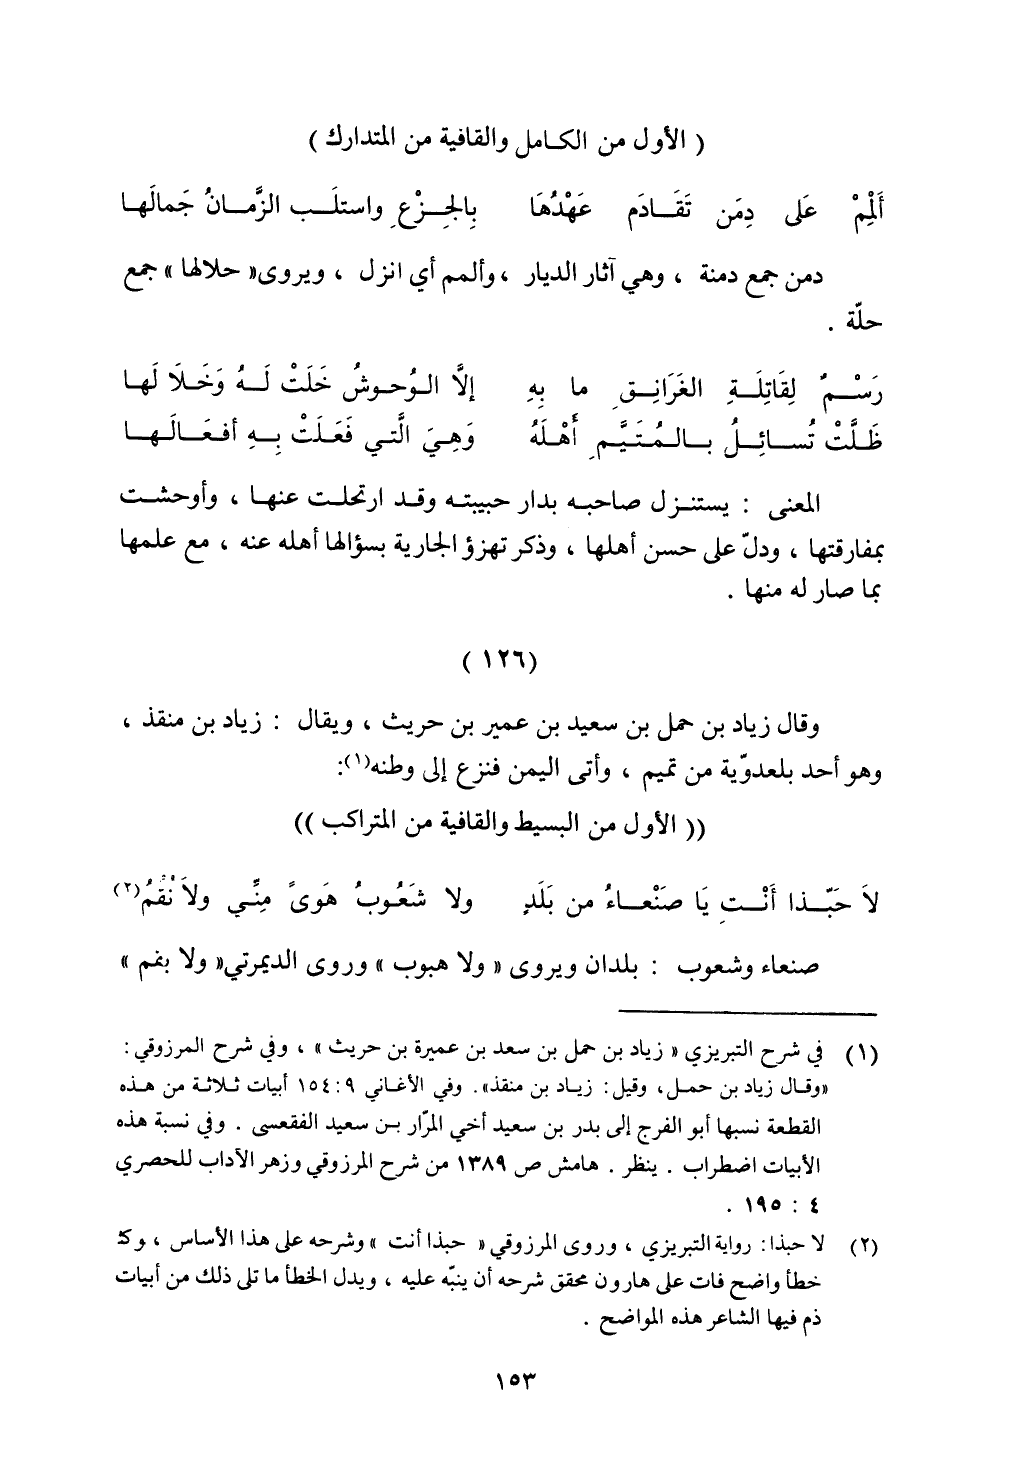 ( الأول من الكامل والقافية من المتدارك )
أَلْمِمْ عَلى دِمَن تَقَادَم عَهْدُهَا بِالجِزْعِ واستلَب الزَّمانُ جَمالَها
دمن جمع دمنة ، وهي آثار الديار ، وألمم أي انزل ، ويروى « حلالها » جمع
حلّة .
رَسْمٌ لِقَاتِلَةِ الغَرَانِقِ ما بِهِ إلَّا الوُحوشُ خَلَتْ لَهُ وَخَلَا لَها
ظَلَّتْ تُسائِلُ بالمُتَيَّمِ أَهْلَهُ وَهِيَ الَّتي فَعَلَتْ بِهِ أفعَالَها
المعنى : يستنزل صاحبه بدار حبيبته وقد ارتحلت عنها ، وأوحشت
بمفارقتها ، ودلّ على حسن أهلها ، وذكر تهزؤ الجارية بسؤالها أهله عنه ، مع علمها
بما صار له منها .
(١٢٦ )
وقال زياد بن حمل بن سعيد بن عمير بن حريث ، ويقال : زياد بن منقذ ،
وهو أحد بلعدوّية من تميم ، وأتى اليمن فنزع إلى وطنه(١):
(( الأول من البسيط والقافية من المتراكب ))
لاَ حَبّذا أَنْتِ يَا صَنْعاءُ من بَلَدٍ ولا شَعُوبُ هَوىً مِنِّي ولاَ نُقُمُ(٢)
صنعاء وشعوب : بلدان ويروى « ولا هبوب » وروى الديمرتي « ولا بقم »
(١) في شرح التبريزي « زياد بن حمل بن سعد بن عميرة بن حريث » ، وفي شرح المرزوقي :
«وقال زياد بن حمل، وقيل: زياد بن منقذ». وفي الأغاني ٩: ١٥٤ أبيات ثلاثة من هذه
القطعة نسبها أبو الفرج إلى بدر بن سعيد أخي المرّار بن سعيد الفقعسى . وفي نسبة هذه
الأبيات اضطراب . ينظر . هامش ص ١٣٨٩ من شرح المرزوقي وزهر الآداب للحصري
٤ : ١٩٥ .
(٢) لا حبذا: رواية التبريزي ، وروى المرزوقي « حبذا أنت » وشرحه على هذا الأساس ،
خطأ واضح فات على هارون محقق شرحه أن ينبّه عليه ، ويدل الخطأ ما تلى ذلك من أبيات
ذم فيها الشاعر هذه المواضح .
١٥٣